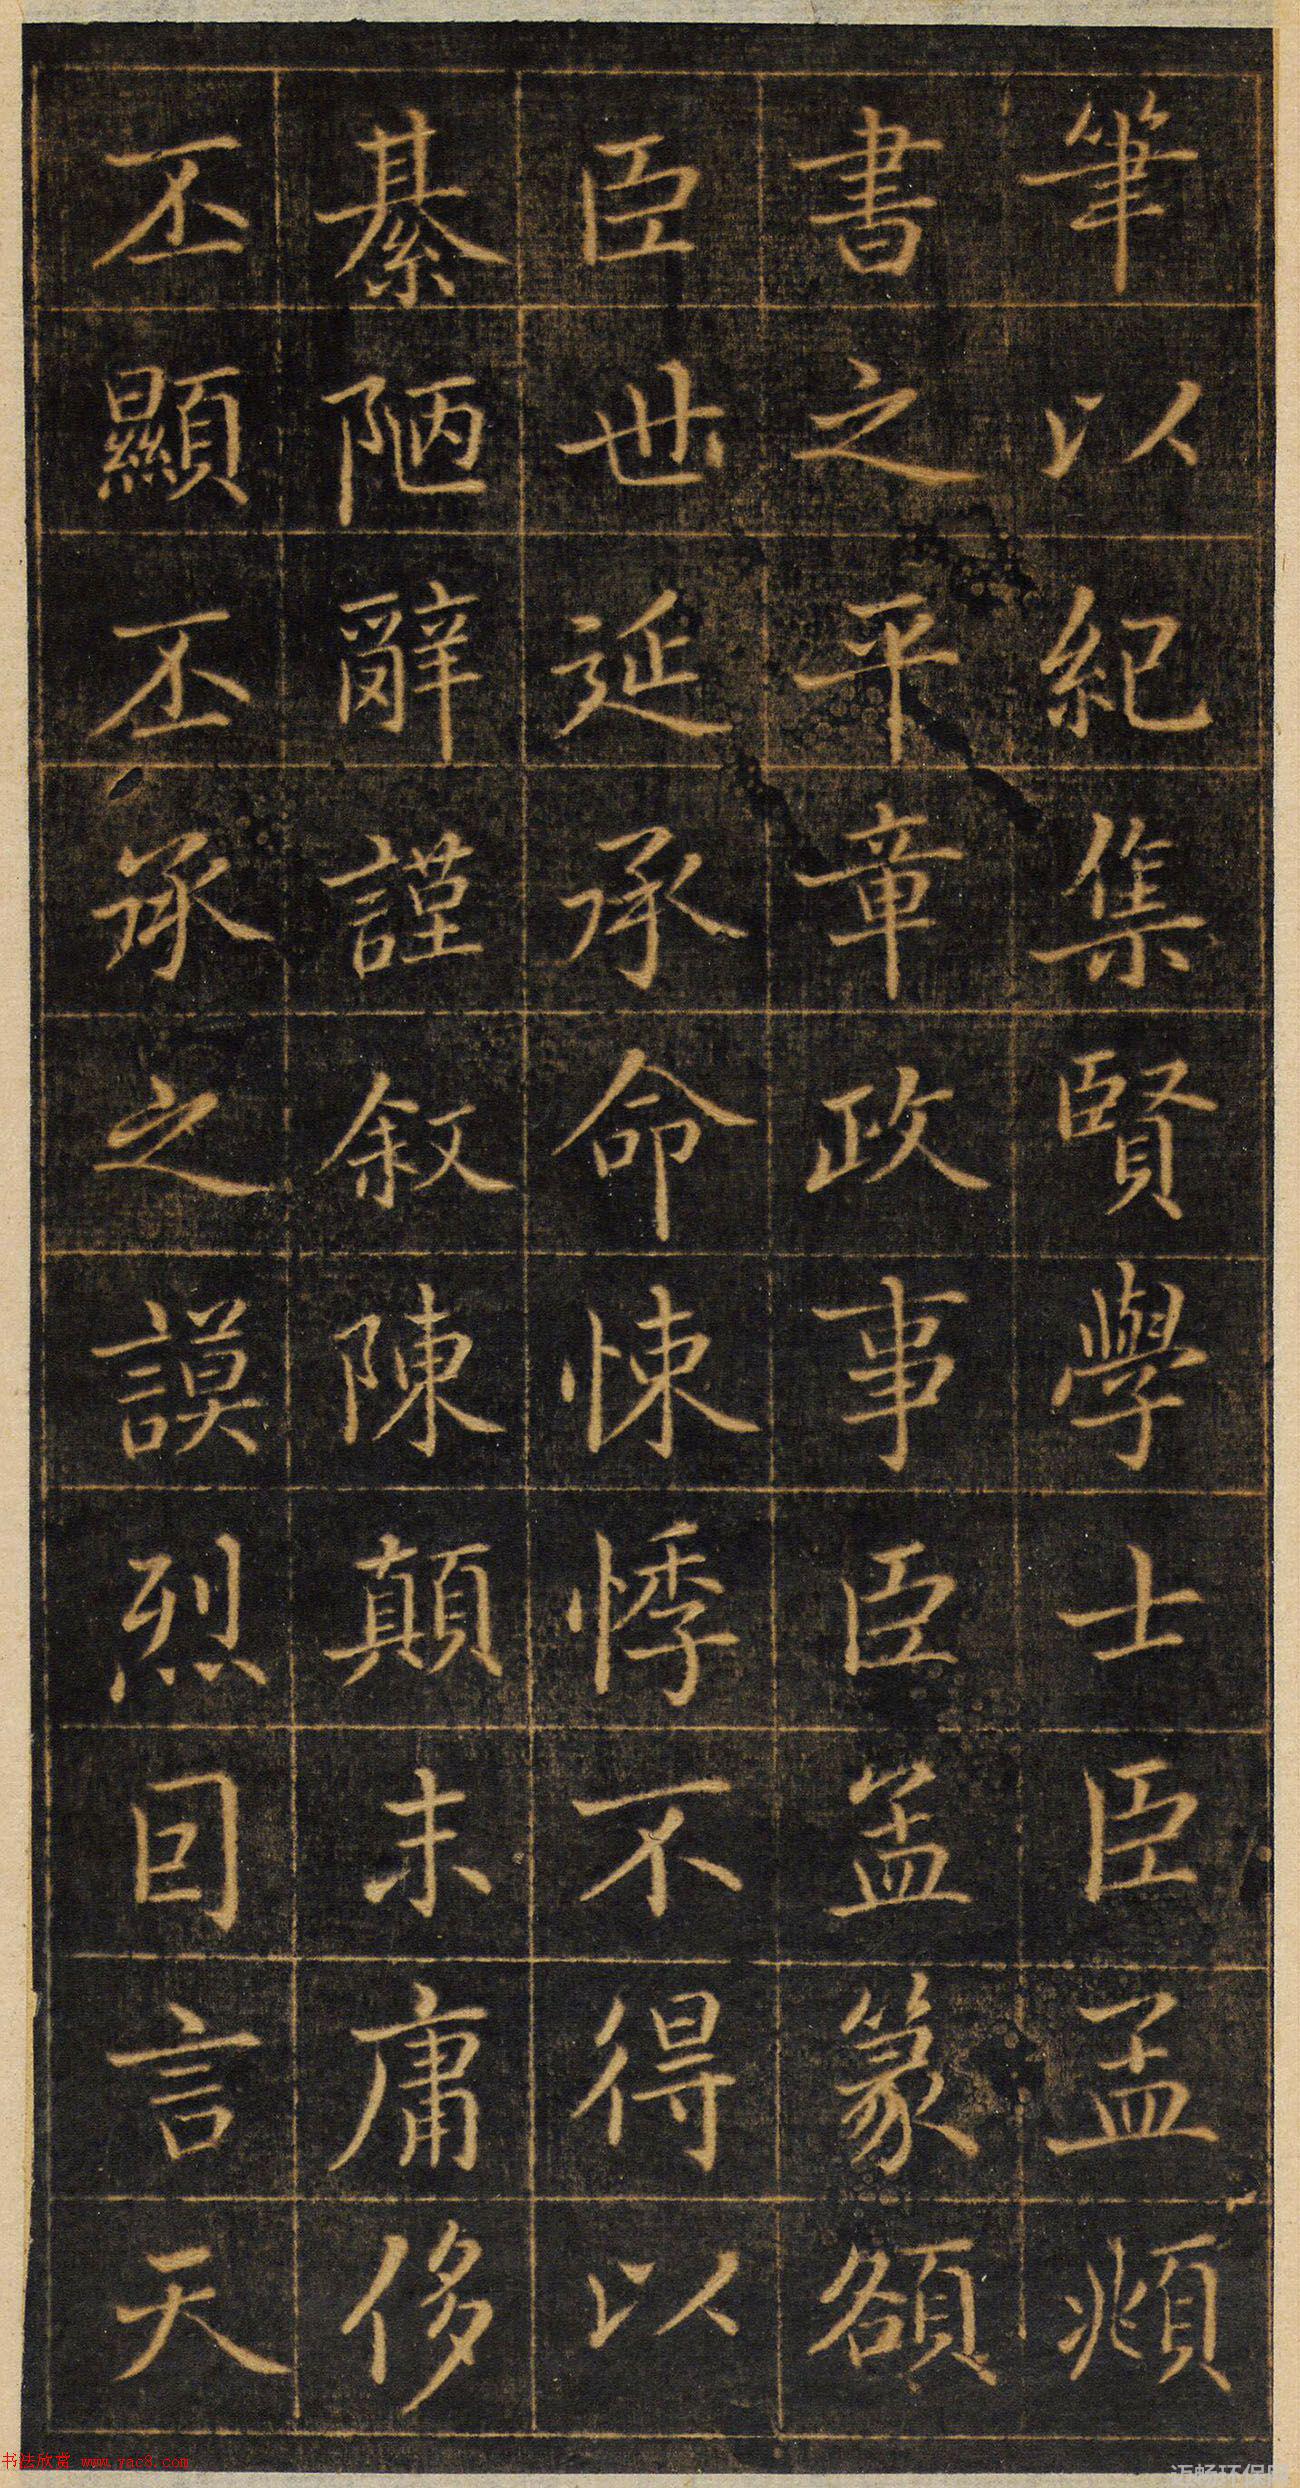 筆以紀集賢學士臣孟頫
書之平章政事臣孟篆額
臣世延承命悚悸不得以
綦陋辭謹叙陳顛末庸侈
丕顯丕承之謨烈因言天
书法欣赏 www.yac8.com